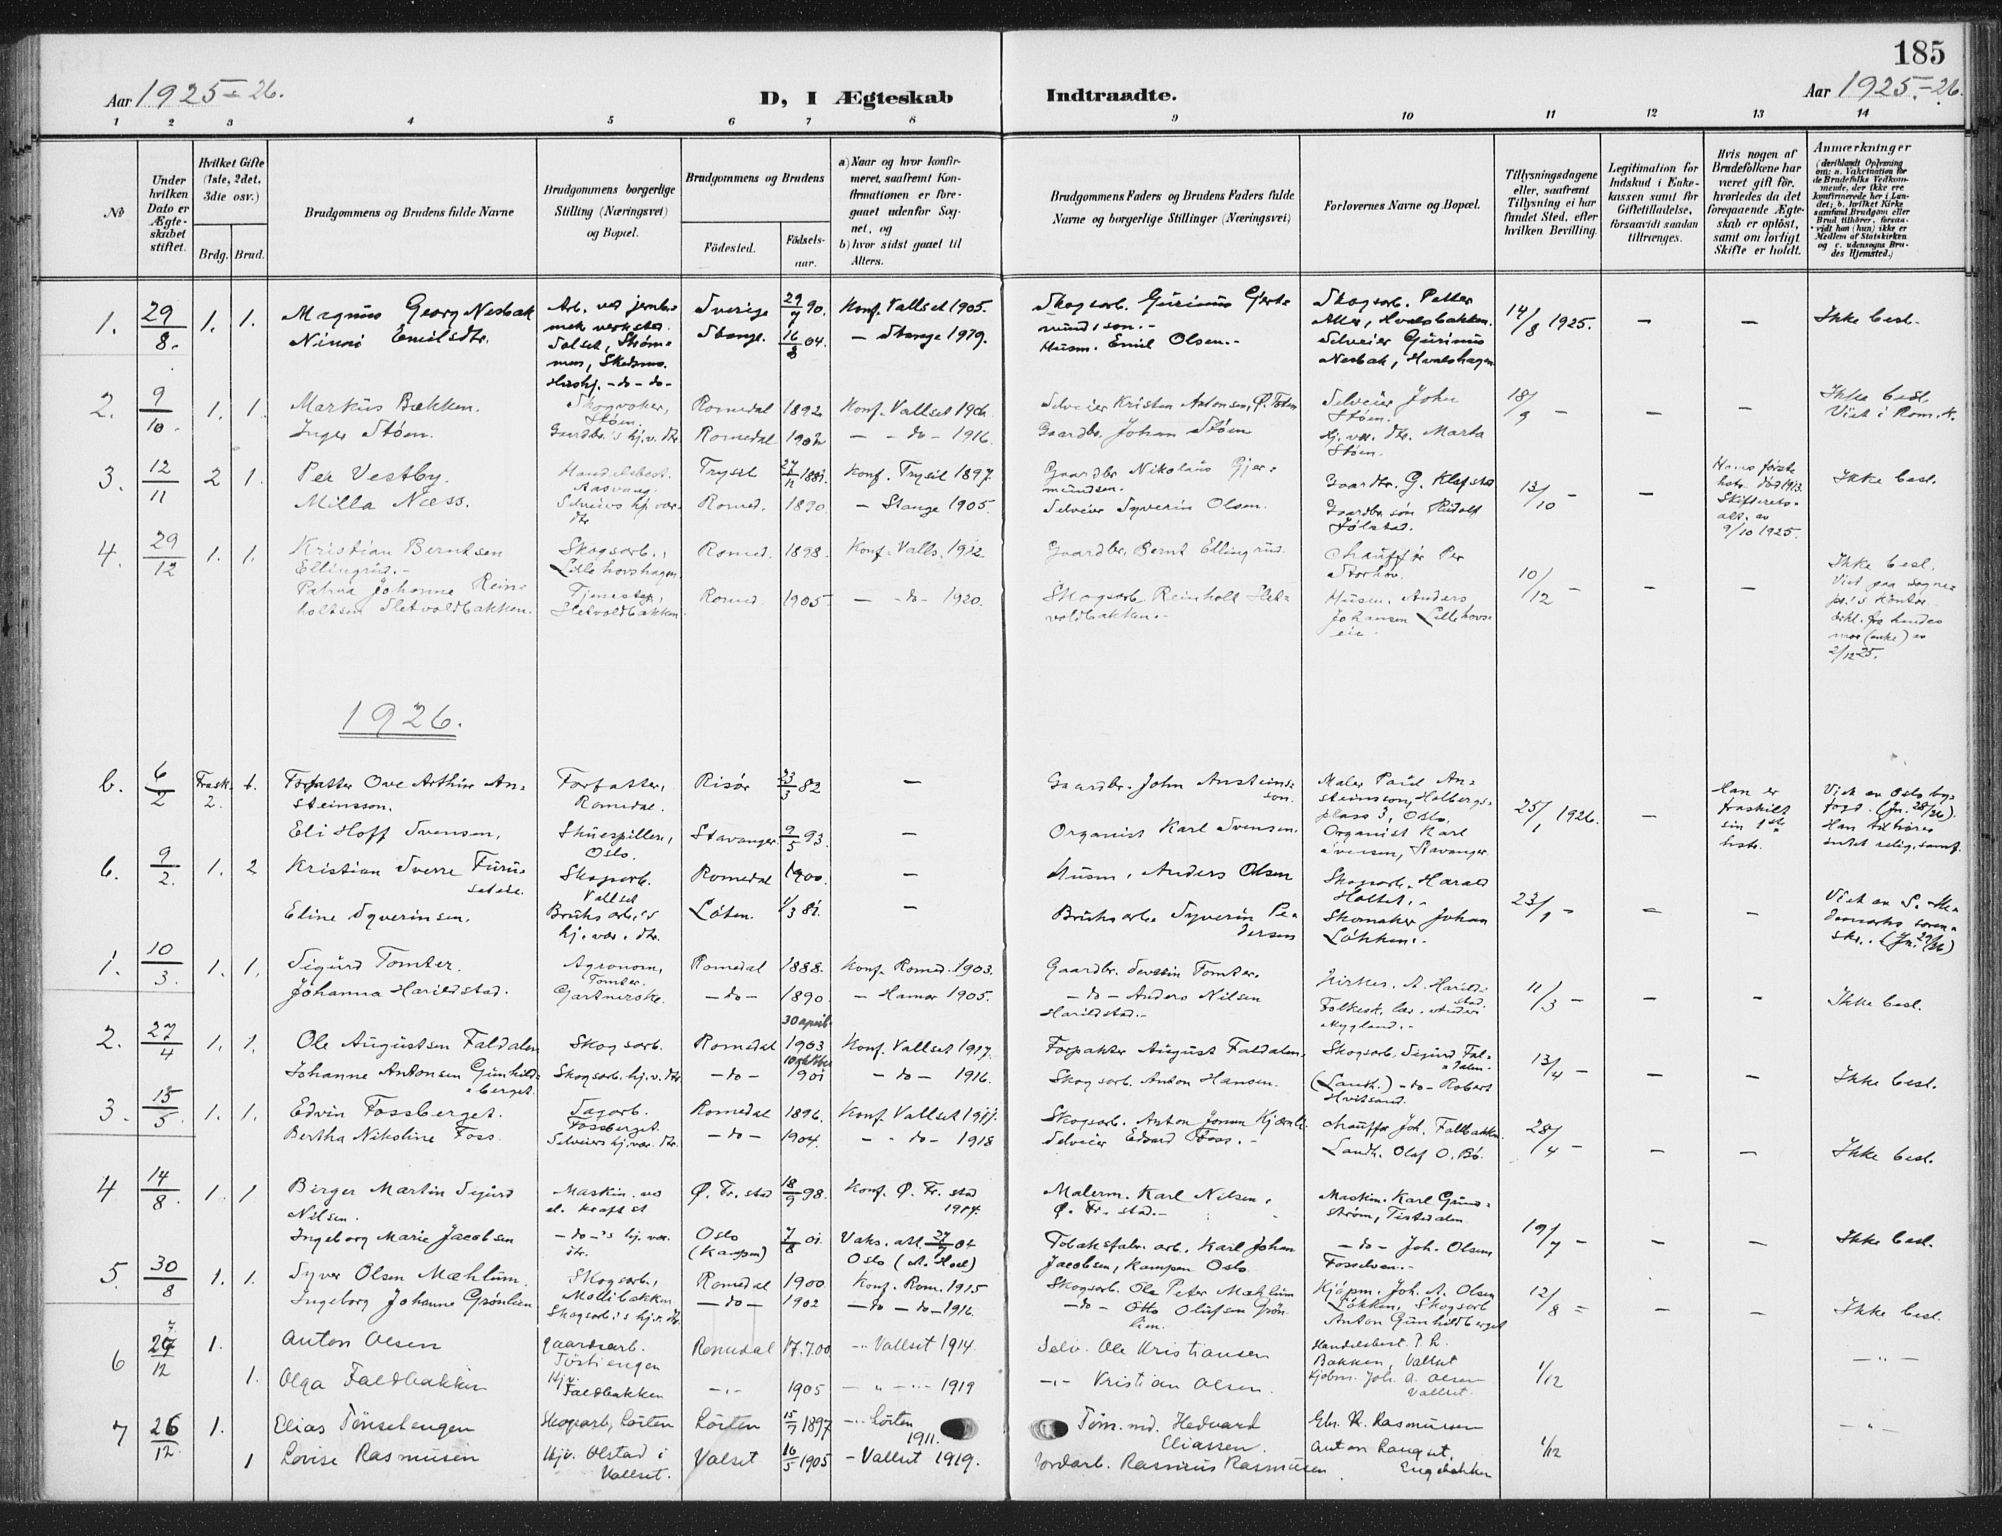 185
Aar 1925-26.
D, I Ægteskab Indtraadte.
Aar 1925-26.
1 2 3 4 5 6 7 8 9 10 11 12 13 14
No
Under hvilken Dato er Ægteskabet stiftet.
Hvilket Gifte (1ste, 2det, 3die osv.)
Brdg. Brud.
Brudgommens og Brudens fulde Navne
Brudgommens borgerlige Stilling (Næringsvei) og Bopæl.
Brudgommens og Brudens
Fødested. Fødselsaar.
a) Naar og hvor konfirmeret, saafremt Konfirmationen er foregaaet udenfor Sognet, og
b) hvor sidst gaaet til Alters.
Brudgommens Faders og Brudens Faders fulde Navne og borgerlige Stillinger (Næringsvei)
Forlovernes Navne og Bopæl.
Tillysningsdagene eller, saafremt Tillysning ei har fundet Sted, efter hvilken Bevilling.
Legitimation for Indskud i Enkekassen samt for Giftetilladelse, forsaavidt saadan tiltrænges.
Hvis nogen af Brudefolkene har været gift før, hvorledes da det foregaaende Ægteskab er opløst, samt om lovligt Skifte er holdt.
Anmærkninger
1. 29/8. 1. 1. Magnus Georg Nesbak Arb. ved Sverige 29/7 90. Konf. Vallset 1905. Skogsarb. Gurinius Skogsarb. Petter 14/8 1925. - - Ikke besl.
Emilsdtr. Stange. 16/8 04. - Stange 1919. Husm. Emil Olsen.- Selveier Gurinius
Nesbak, Hvalshagen
2. 9/10. 1. 1. Markus Bækken. Romedal 1892. Konf. Vallset 1906. Selveier Kristen Antonsen, Ø. Toten Selveier John Støen. 18/9 - - - Ikke besl.
Inger Støen. Gaardbr.'s hj.v. dtr. Romedal 1902 - - do - 1916. Gaardbr. Johan Støen Hj. vær. dtr. Marta Støen. Viet i Rom. k.
3. 12/11 2 1. Per Vestby. Trysil Konf. Trysil 1897. Gaardbr. Nikolaus Gjermundsen. Gaardbr. G. 13/10 - - Ikke besl.
Milla Næss. Selveiers hj. vær. dtr Romed. 1890 - Stange 1905. Selveier Syverin Olsen. Gaardbr. søn Rudolf
Hans første hstr. død 1913. 9/10 1925.
4. 29/12 1. 1. Kristian Berntsen Ellingrud.- Skogsarb., Lille hovshagen Romed. 1898. Konf. Valls. 1912. Gaardbr. Bernt Ellingrud. Chauffør Per Storhov. 10/12 - - - Ikke besl.
Johanne Reinholtsen Sletvoldbakken. Tjenestep., Sletvoldbakken Romed 1905 - - do - 1920. Skogsarb. Reinholt Sletvoldbakken.- Husm. Anders Johansen Lillehovseie. Viet paa sognepr.'s kontor
mor (enke) av 2/12 25.
1926.
b. 6/2 Frask. 2. 1. Forfatter Ove Arthur Ansteinsson. Forfatter, Romedal. Risør 23/3 82 - Gaardbr. John Ansteinsson. Maler Paul Ansteinsson, Holbergs plass 3, Oslo. 25/1 1926. - Han er fraskilt sin 1ste hstr. Viet av Oslo byfogd. (Jn. 28/26).
Eli Hoff Svensen, Skuespiller, Oslo. Stavanger 9/5 93. - Organist Karl Svensen. Organist Karl Svensen, Stavanger. Han tilhører intet relig. samf.
b. 9/2. 1. 2 Kristian Sverre Furuseteie. Skogsarb. Vallset Romedal 1900. - Husm. Anders Olsen Skogsarb. Harald Holtet.- 23/1 - - - Viet av S. Hedemarks sorenskr. (Jn. 29/26)
Eline Syverinsen. Bruksarb.'s hj. vær. dtr. Løten. 1/3 81. - Bruksarb. Syverin Pedersen Skomaker Johan Løkken.-
1. 10/3. 1. 1. Sigurd Tomter. Agronom, Tomter. Romedal 1888. Konf. Romed. 1903. Gaardbr. Severin Tomter. Kirkes. A. Harildstad. 11/3 - - - Ikke besl.
Johanna Harildstad. Gartnerske. - do - 1890. - Hamar 1905. - do - Anders Nilsen Harildstad.- Folkesk. lær. Anders Mygland.-
2. 27/4 1. 1. Ole Augustsen Faldalen Skogsarb. Romedal 30 april 1903 Konf. Vallset 1917. Forpakter August Faldalen. Skogsarb. Sigurd Faldalen. 13/4 - - - Ikke besl.
Johanne Antonsen Gunhildsberget. Skogsarb. hj. v. dtr. - do - 10 oktober 1901 - do - 1916. Skogsarb. Anton Hansen. (Landh.) - do - Robert Hvitsand.
3. 15/5. 1. 1. Edvin Fossberget. Sagarb. Fossberget. Romedal 1896. Konf. Vallset 1911. Skogsarb. Anton Jonsen Chauffør Joh. Fallbakken. 28/4 - - - Ikke besl.
Bertha Nikoline Foss. Selveiers hj. vær. dtr. - do - 1904. - - do - 1918 Selveier Edvard Foss.- Landh. Olaf O. Bø.
4 14/8. 1. 1 Birger Martin Sigurd Nilsen. Maskin. ved el. kraftst Ø. Fr. stad 18/9 98. Konf. Ø. Fr. stad 1914. Malerm. Karl Nilsen, Ø. Fr. stad.- Maskin. Karl Grundstrøm, Tistedalen 19/7 - - - Ikke besl.
Ingeborg Marie Jacobsen - do -'s hj. vær. dtr. Oslo (Kampen) 7/8 01. Vaks. att. Oslo Tobaksfabr. arb. Karl Johan Jacobsen, Kampen Oslo. - do - Joh. Olsen Fosselven.-
5. 30/8 1. 1. Syver Olsen Mæhlum. Skogsarb., Mollibakken Romedal 1900 Konf. Rom. 1915 Skogsarb. Ole Peter Mæhlum Kjøpm. Joh. A. Olsen Løkken, Skogsarb 12/8 - - - Ikke besl.
Ingeborg Johanne Grønlien. Skogsarb.'s hj. v. dtr. - do - 1902 - do - do - 1916. - do - Otto Olufsen Anton Gunhildberget
6 1. Anton Olsen gaardsarb. Romedal 17.7.00 -"- Vallset 1914. Selv. Ole Kristiansen Handelsbest. P. R. Bakken, Vallset 1/12 -"-
1. Olga Faldbakken Hjv. Faldbakken -"- 1905 - " - - 1919 -"- Kristian Olsen. Kjøbm. Joh. A. Olsen Vallset.
7 26/12. 1. Elias Tønsetengen Skogsarb, Løiten Løiten 15/7 1897 -"- Løiten 1911. Tøm. md. Hedvard Eliassen. Gbr. R. Rasmussen 1/12 -"-
1 Lovise Rasmussen Hjv. Ølstad i Vallset. Valset 16/5 1905 - Vallset 1919. Jordarb. Rasmus Rasmussen Anton Engebakken